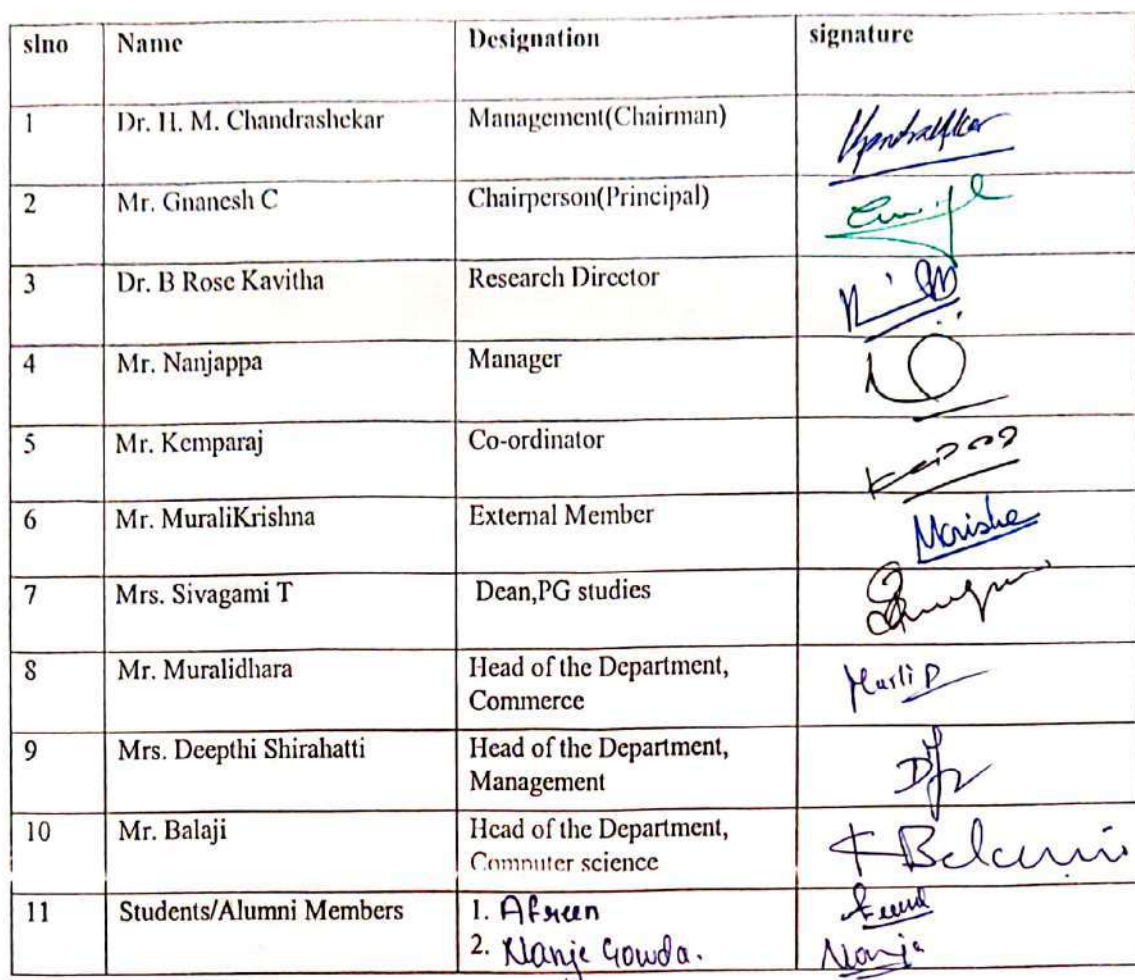 slno Name Designation signature
1 Dr. H. M. Chandrashekar Management(Chairman)
2 Mr. Gnanesh C Chairperson(Principal)
3 Dr. B Rose Kavitha Research Director
4 Mr. Nanjappa Manager
5 Mr. Kemparaj Co-ordinator
6 Mr. MuraliKrishna External Member
7 Mrs. Sivagami T Dean,PG studies
8 Mr. Muralidhara Head of the Department,
Commerce
9 Mrs. Deepthi Shirahatti Head of the Department,
Management
10 Mr. Balaji Head of the Department,
Computer science
11 Students/Alumni Members 1. Afreen
2. Nanje Gowda. Nanja